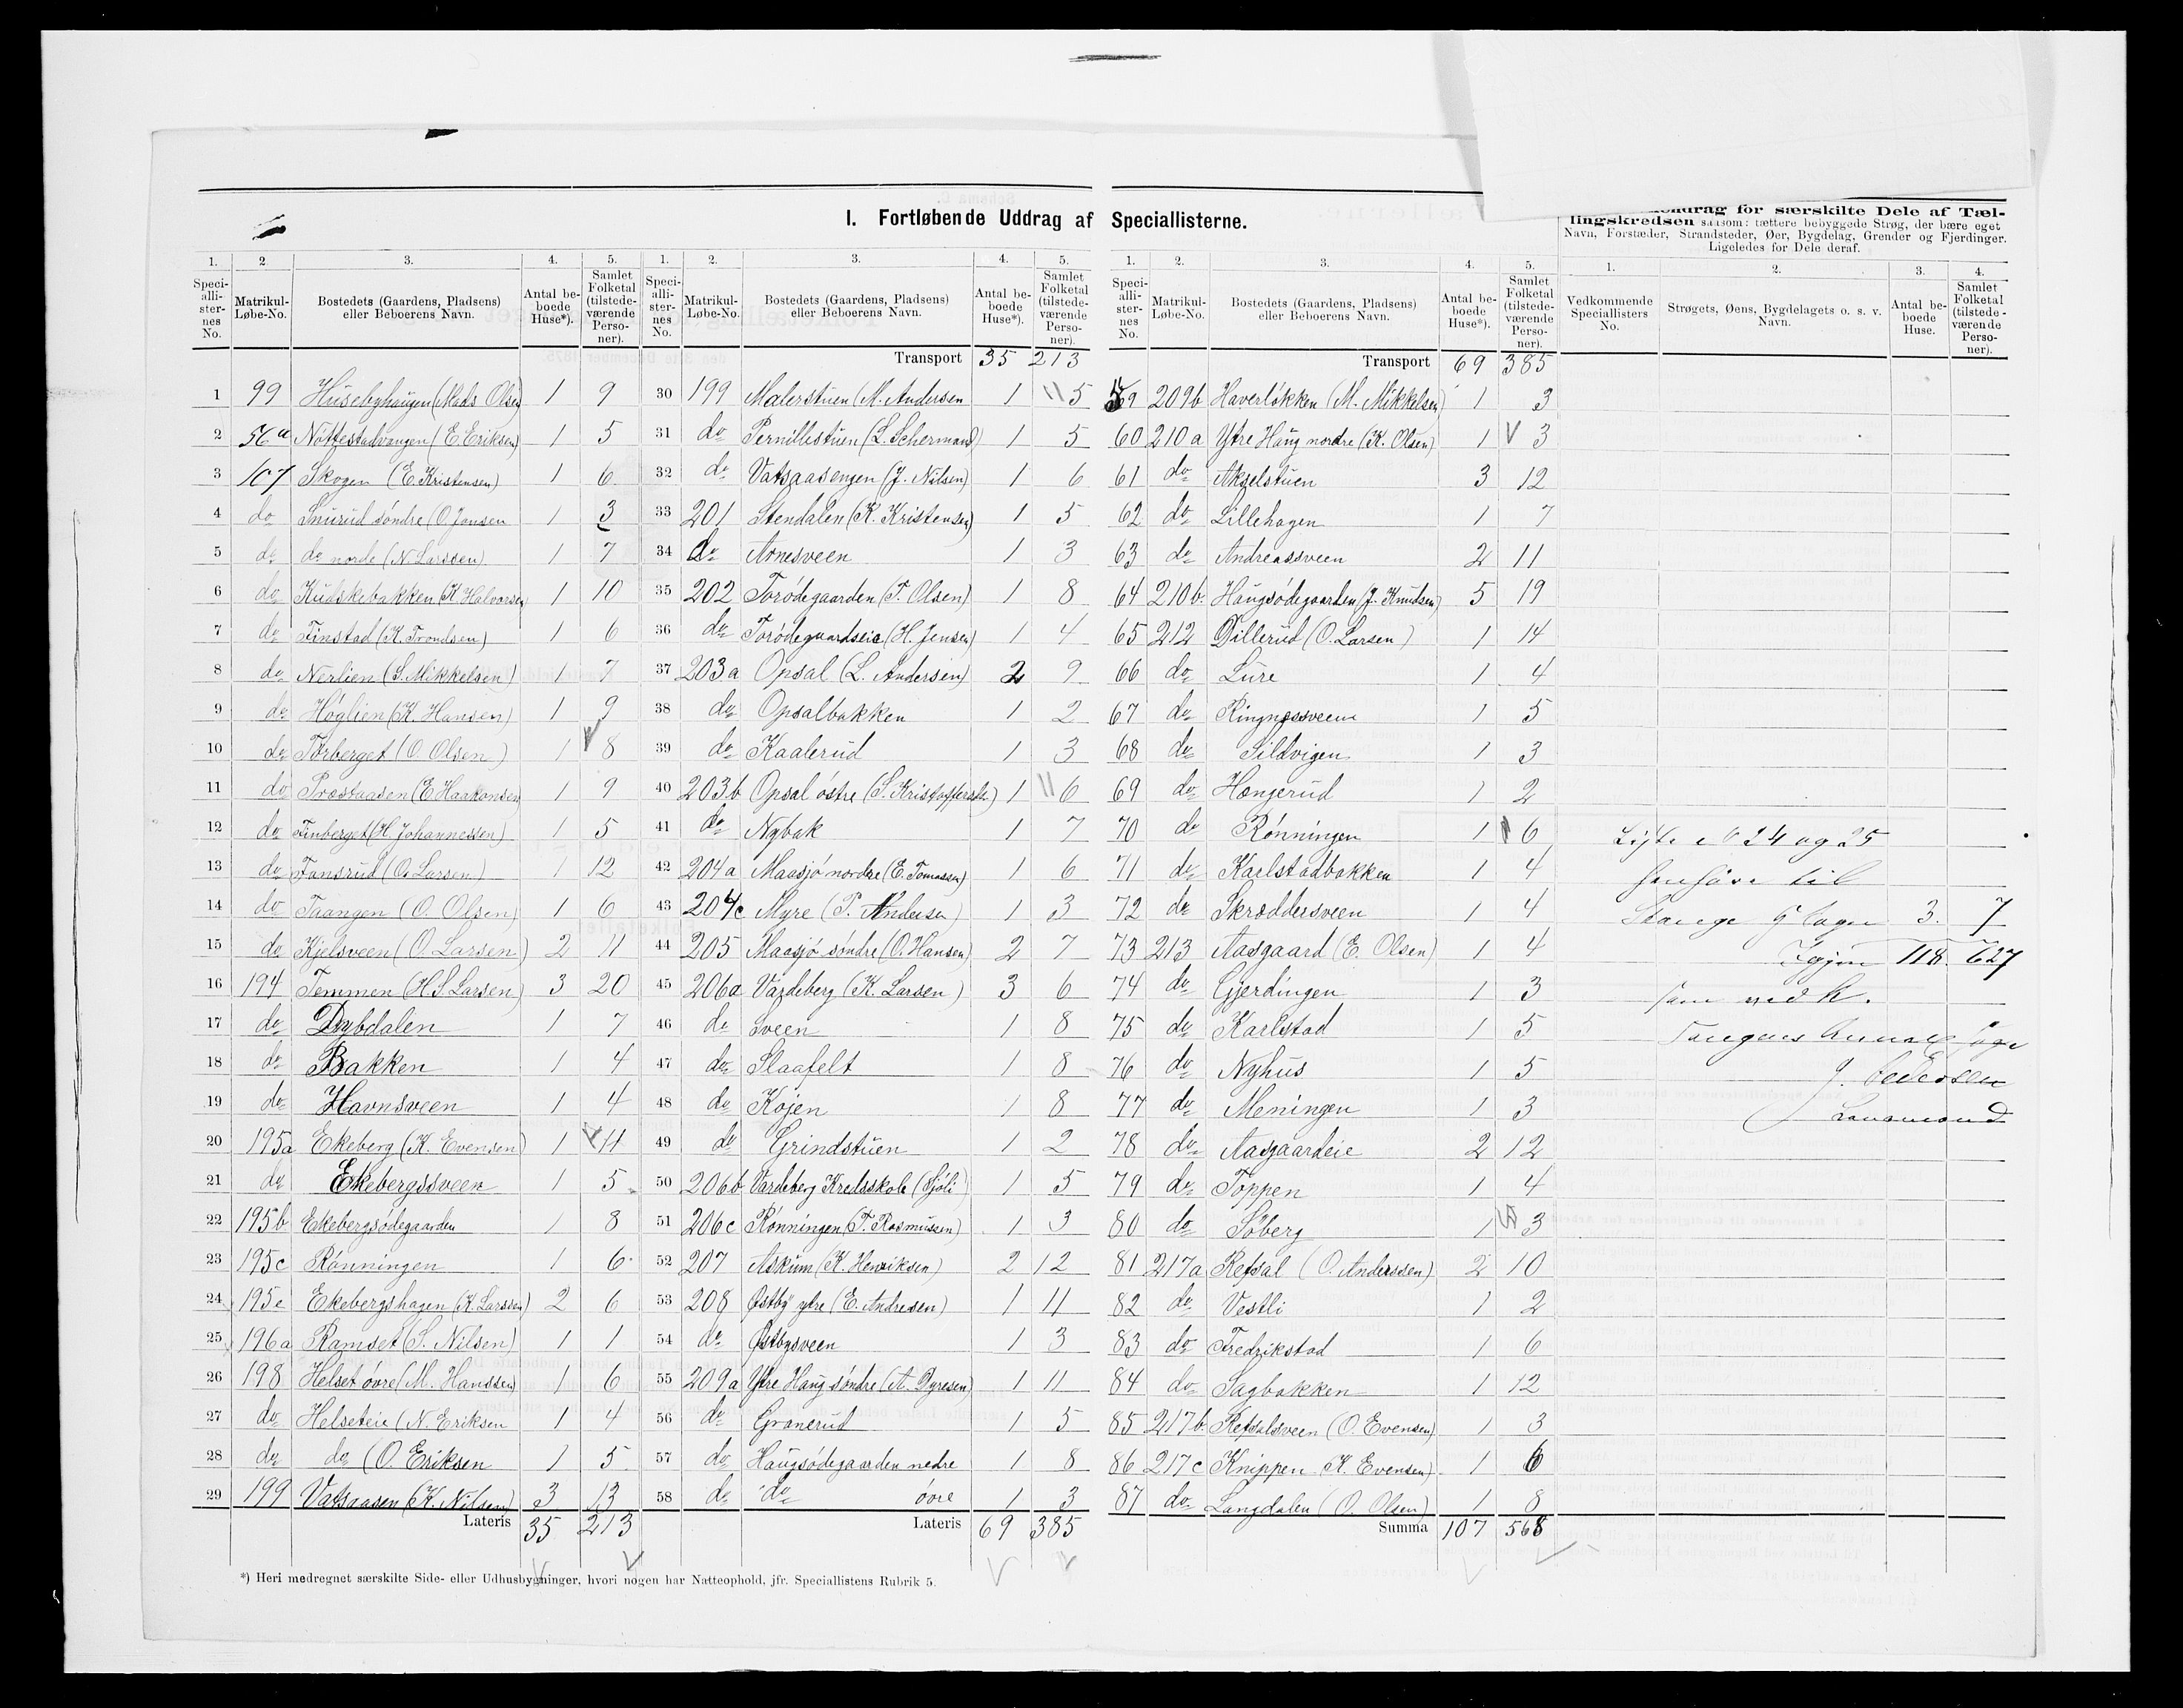 I. Fortløbende Uddrag af Speciallisterne.
1. 2. 3. 4. 5.
Speciallisternes No. Matrikul-Løbe-No. Bostedets (Gaardens, Pladsens) eller Beboerens Navn. Antal beboede Huse*). Samlet Folketal (tilstedeværende Personer).
1 99 Husebyhaugen (Mads Olsen 1 9
2 56a Nøttestadvangen (E. Eriksen) 1 5
3 107 Skogen (E. Kristensen) 1 6
4 do Snurud søndre (O. Jonsen 1 3
5 do do nordre (N. Larssen) 1 7
6 do Kudskebakken (K. Halvorsen 1 10
7 do Finstad (K. Trondsen) 1 6
8 do Nerlien (S. Mikkelsen) 1 7
9 do Høglien (K. Hansen) 1 9
10 do Torberget (O Olsen) 1 8
11 do Prostaasen (E. Haakonsen 1 9
12 do Finberget (H. Johannessen) 1 5
13 do Fansrud (O. Larsen) 1 12
14 do Taangen (O. Olsen) 1 6
15 do Kjelsveen (O. Larsen) 2 11
16 194 Temmen (H. S. Larsen) 3 20
17 do Dybdalen 1 7
18 do Bakken 1 4
19 do Havnsveen 1 4
20 195a Ekeberg (K. Evensen) 1 11
21 do Ekebergssveen 1 5
22 195b Ekebergsødegaarden 1 8
23 195c Rønningen 1 6
24 195e Ekebergshagen (K. Larssen) 2 6
25 196a Ramset (S. Nilsen) 1 1
26 198 Helset øvre (M. Hanssen) 1 6
27 do Helseteie (N. Eriksen 1 4
28 do do (O. Eriksen 1 5
29 199 Vatsaasen (K. Nilsen) 3 13
Lateris 35 213
1. 2. 3. 4. 5.
Speciallisternes No. Matrikul-Løbe-No. Bostedets (Gaardens, Pladsens) eller Beboerens Navn. Antal beboede Huse*). Samlet Folketal (tilstedeværende Personer).
Transport 35 213
30 199 Malerstuen (M. Andersen 1 5
31 do Pernillestuen (L. Schermand) 1 5
32 do Vatsaasengen (J. Nilsen) 1 6
33 201 Stendalen (K. Kristensen) 1 5
34 do Arnesveen 1 3
35 202 Torødegaarden (T. Olsen) 1 8
36 do Torødegaardseie (H. Jensen) 1 4
37 203a Opsal (L. Andersen) 2 9
38 do Opsalbakken 1 2
39 do Kaalerud 1 3
40 203b Opsal østre (S. Kristoffersen) 1 6
41 do Nybak 1 7
42 204a Maasjø nordre (E. Tomassen) 1 6
43 204c Myre (P. Andersen) 1 3
44 205 Maasjø søndre (O. Hansen) 2 7
45 206a Vardeberg (K. Larsen) 3 6
46 do Sveen 1 8
47 do Slaafelt 1 8
48 do Kojen 1 8
49 do Grindstuen 1 2
50 206b Vardeberg Kredsskole (Sjøli) 1 5
51 206c Rønningen (T. Rasmussen) 1 3
52 207 Askum (K. Henriksen) 2 12
53 208 Østby ytre (E. Andresen) 1 11
54 do Østbysveen 1 3
55 209a Ytre Haug søndre (A. Dyresen) 1 11
56 do Granerud 1 5
57 do Haugsødegaarden nedre 1 8
58 do do øvre 1 3
Lateris 69 385
1. 2. 3. 4. 5.
Speciallisternes No. Matrikul-Løbe-No. Bostedets (Gaardens, Pladsens) eller Beboerens Navn. Antal beboede Huse*). Samlet Folketal (tilstedeværende Personer).
Transport 69 385
59 209b Haverløkken (M. Mikkelsen) 1 3
60 210a Ytre Haug nordre (K. Olsen) 1 3
61 do Akselstuen 3 12
62 do Lillehagen 1 7
63 do Andreassveen 2 11
64 210b. Haugsødegaarden (J. Knudsen) 5 19
65 212 Dillerud (O. Larsen) 1 14
66 do Lure 1 4
67 do Ringnessveen 1 5
68 do Sildvigen 1 3
69 do Hengerud 1 2
70 do Rønningen 1 6
71 do Karlstadbakken 1 4
72 do Skræddersveen 1 4
73 213 Aasgaard (E. Olsen) 1 4
74 do Gjerdingen 1 3
75 do Karlstad 1 5
76 do Nyhus 1 5
77 do Meningen 1 3
78 do Aasgaardeie 2 12
79 do Toppen 1 4
80 do Søberg 1 3
81 217a Refsal (O. Anderssen) 2 10
82 do Vestli 1 2
83 do Fredrikstad 1 6
84 do Sagbakken 1 12
85 217b. Refsalsveen (O. Evensen) 1 3
86 217c Knippen K. Evensen) 1 6
87 do Langdalen (O. Olsen) 1 8
Summa 107 568
ndrag for særskilte Dele af Tællingskredsen saasom: tættere bebyggede Strøg, der bære eget
Navn, Forstæder, Strandsteder, Øer, Bygdelag, Grender og Fjerdinger.
Ligeledes for Dele deraf.
1. 2. 3. 4.
Vedkommende Speciallisters No. Strøgets, Øens, Bygdelagets o. s. v. Navn. Antal beboede Huse. Samlet Folketal (tilstedeværende Personer).
Liste No 24 og 25
henhøre til
Stange 3. 7
Igjen 118. 627
Tangens
J. Pedersen
Lensmand
*) Heri medregnet særskilte Side- eller Udhusbygninger, hvori nogen har Natteophold, jfr. Speciallistens Rubrik 5.